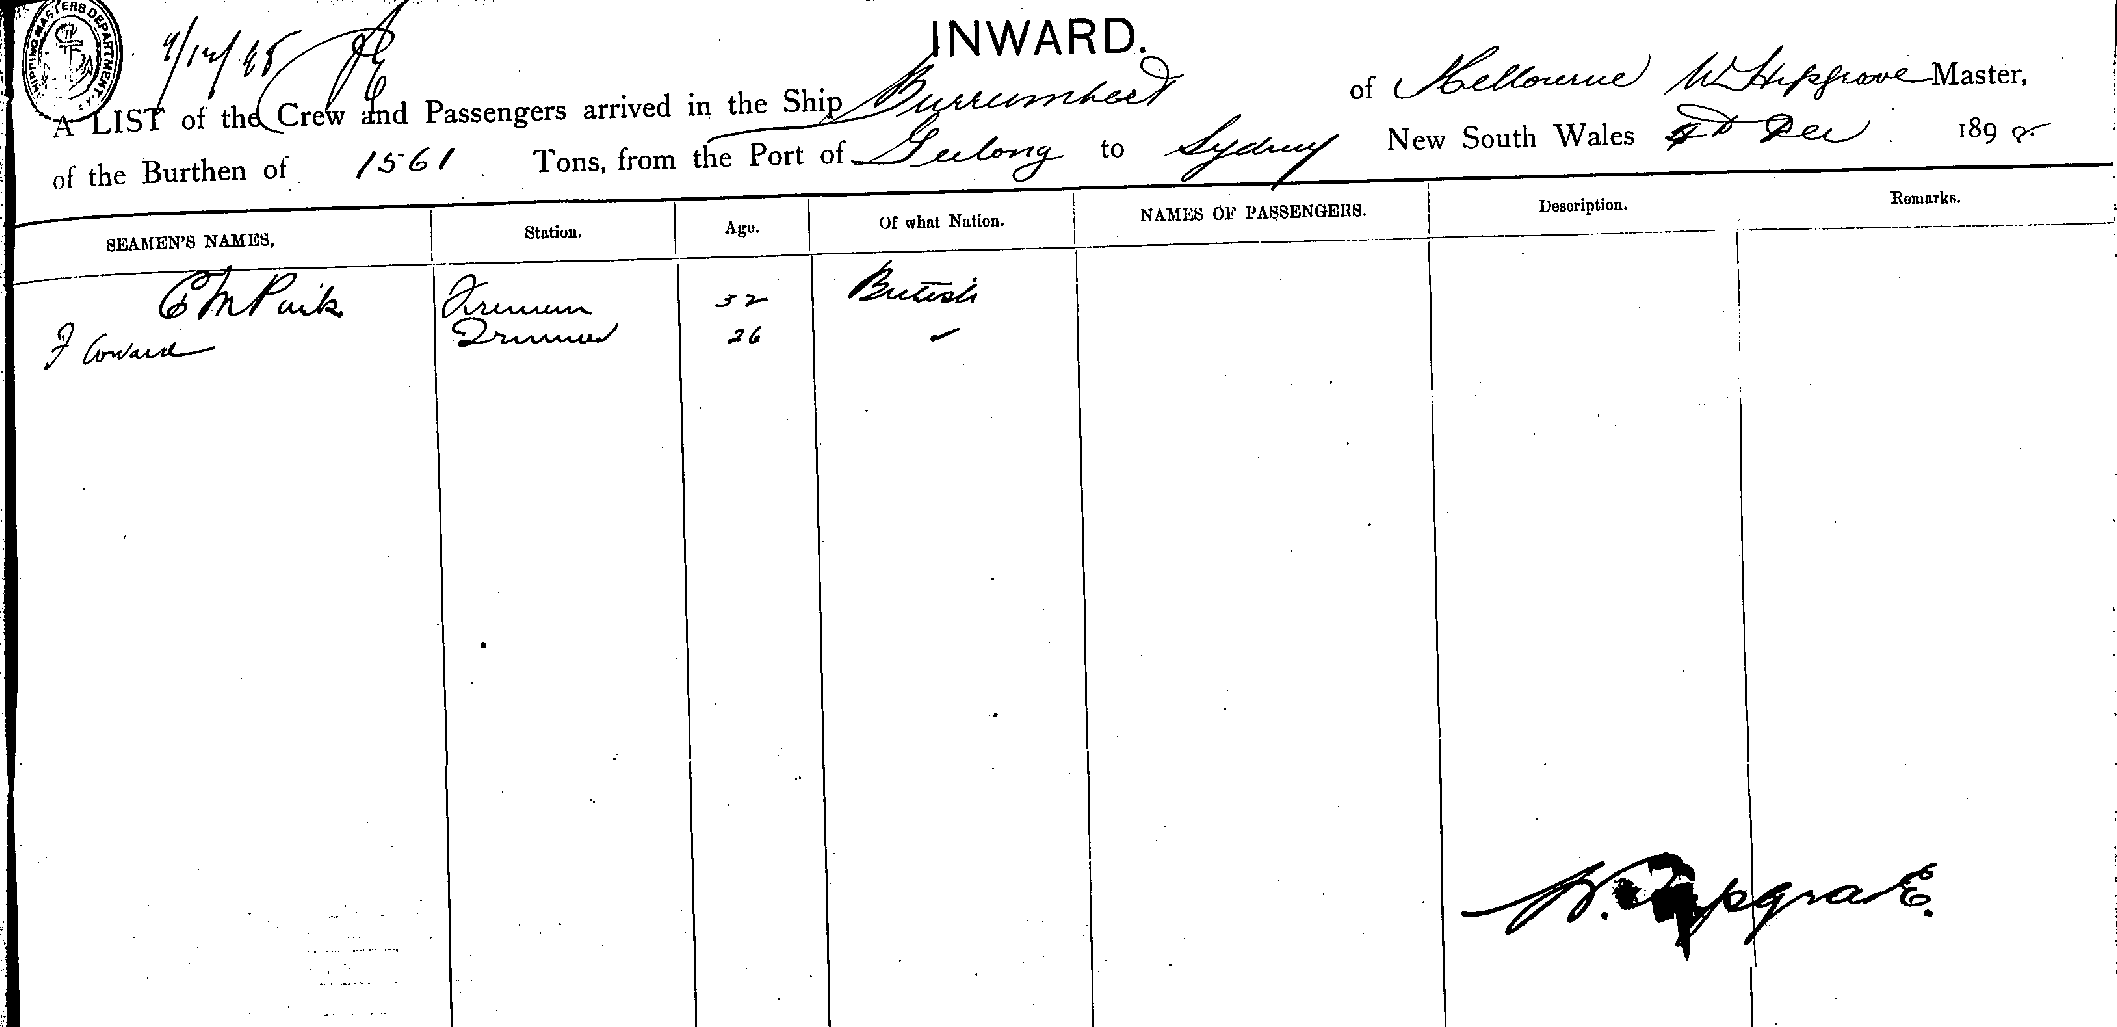 SHIPPING MASTERS DEPARTMENT
INWARD.
A LIST of the Crew and Passengers arrived in the Ship Burrumbeet of Melbourne W Hipgrave Master,
of the Burthen of 1561 Tons, from the Port of Geelong to Sydney New South Wales Dec 189
SEAMEN'S NAMES, Station. Age. Of what Nation. NAMES OF PASSENGERS. Description. Remarks.
Fireman 32 British
F Coward 26